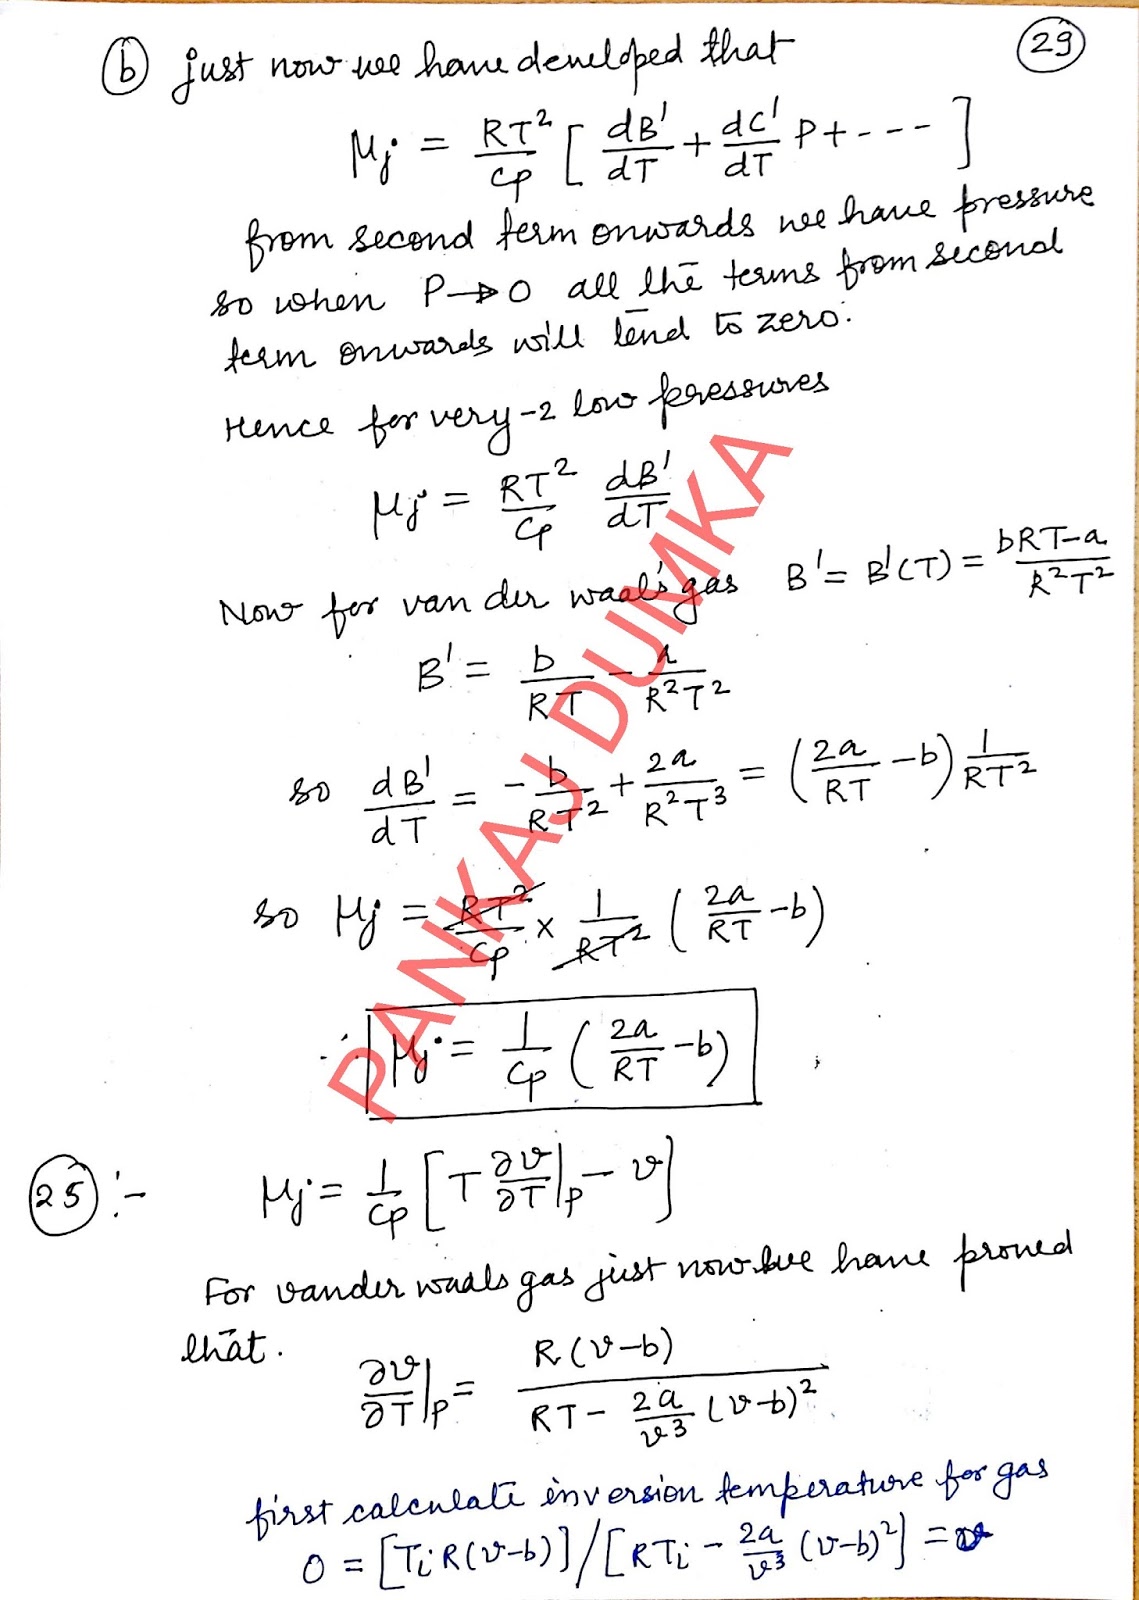 (b) just now we have developed that (29)
μj = RT²/Cp [ dB'/dT + dC'/dT P + --- ]
from second term onwards we have pressure
so when P→0 all the terms from second
term onwards will tend to zero.
Hence for very-2 low pressures
μj = RT²/Cp dB'/dT
Now for van der waal's gas B' = B'(T) = bRT-a/R²T²
B' = b/RT - a/R²T²
so dB'/dT = -b/RT² + 2a/R²T³ = (2a/RT - b) 1/RT²
so μj = RT²/Cp × 1/RT² (2a/RT - b)
∴ μj = 1/Cp (2a/RT - b)
PANKAJ DUMKA
(25) :- μj = 1/Cp [T ∂v/∂T|p - v]
For vander waals gas just now we have proved
that.
∂v/∂T|p = R(v-b) / RT - 2a/v³ (v-b)²
first calculate inversion temperature for gas
0 = [TiR(v-b)]/[RTi - 2a/v³ (v-b)²] = v